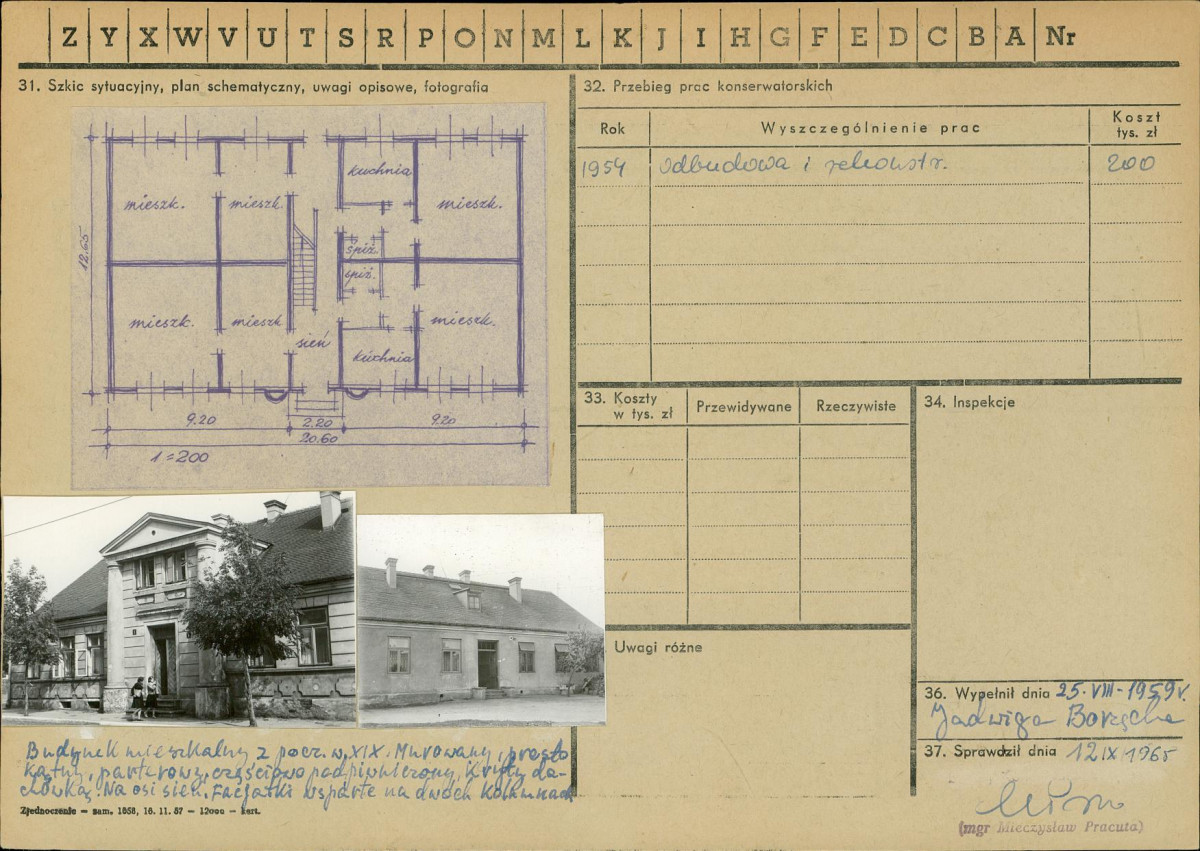 Z Y X W V U T S R P O N M L K J I H G F E D C B A Nr
31. Szkic sytuacyjny, plan schematyczny, uwagi opisowe, fotografia
kuchnia
mieszk. mieszk. mieszk.
spiż.
spiż.
mieszk. mieszk mieszk.
sień
kuchnia
12.65
9.20 2.20 9.20
20.60
1=200
Budynek mieszkalny z pocz. w. XIX. Murowany, prosto
kątny, parterowy, częściowo podpiwniczony, Kryty da-
chówką. Na osi sień. Facjatki wsparte na dwóch kolumnach
Zjednoczenie — zam. 1858, 16. 11. 57 — 12000 — kart.
32. Przebieg prac konserwatorskich
Rok Wyszczególnienie prac Koszt
tys. zł
1954 odbudowa i rekonstr. 200
33. Koszty
w tys. zł Przewidywane Rzeczywiste
34. Inspekcje
Uwagi różne
36. Wypełnił dnia 25-VIII-1959r.
Jadwiga
37. Sprawdził dnia 12 IX 1965
(mgr Mieczysław Pracuta)